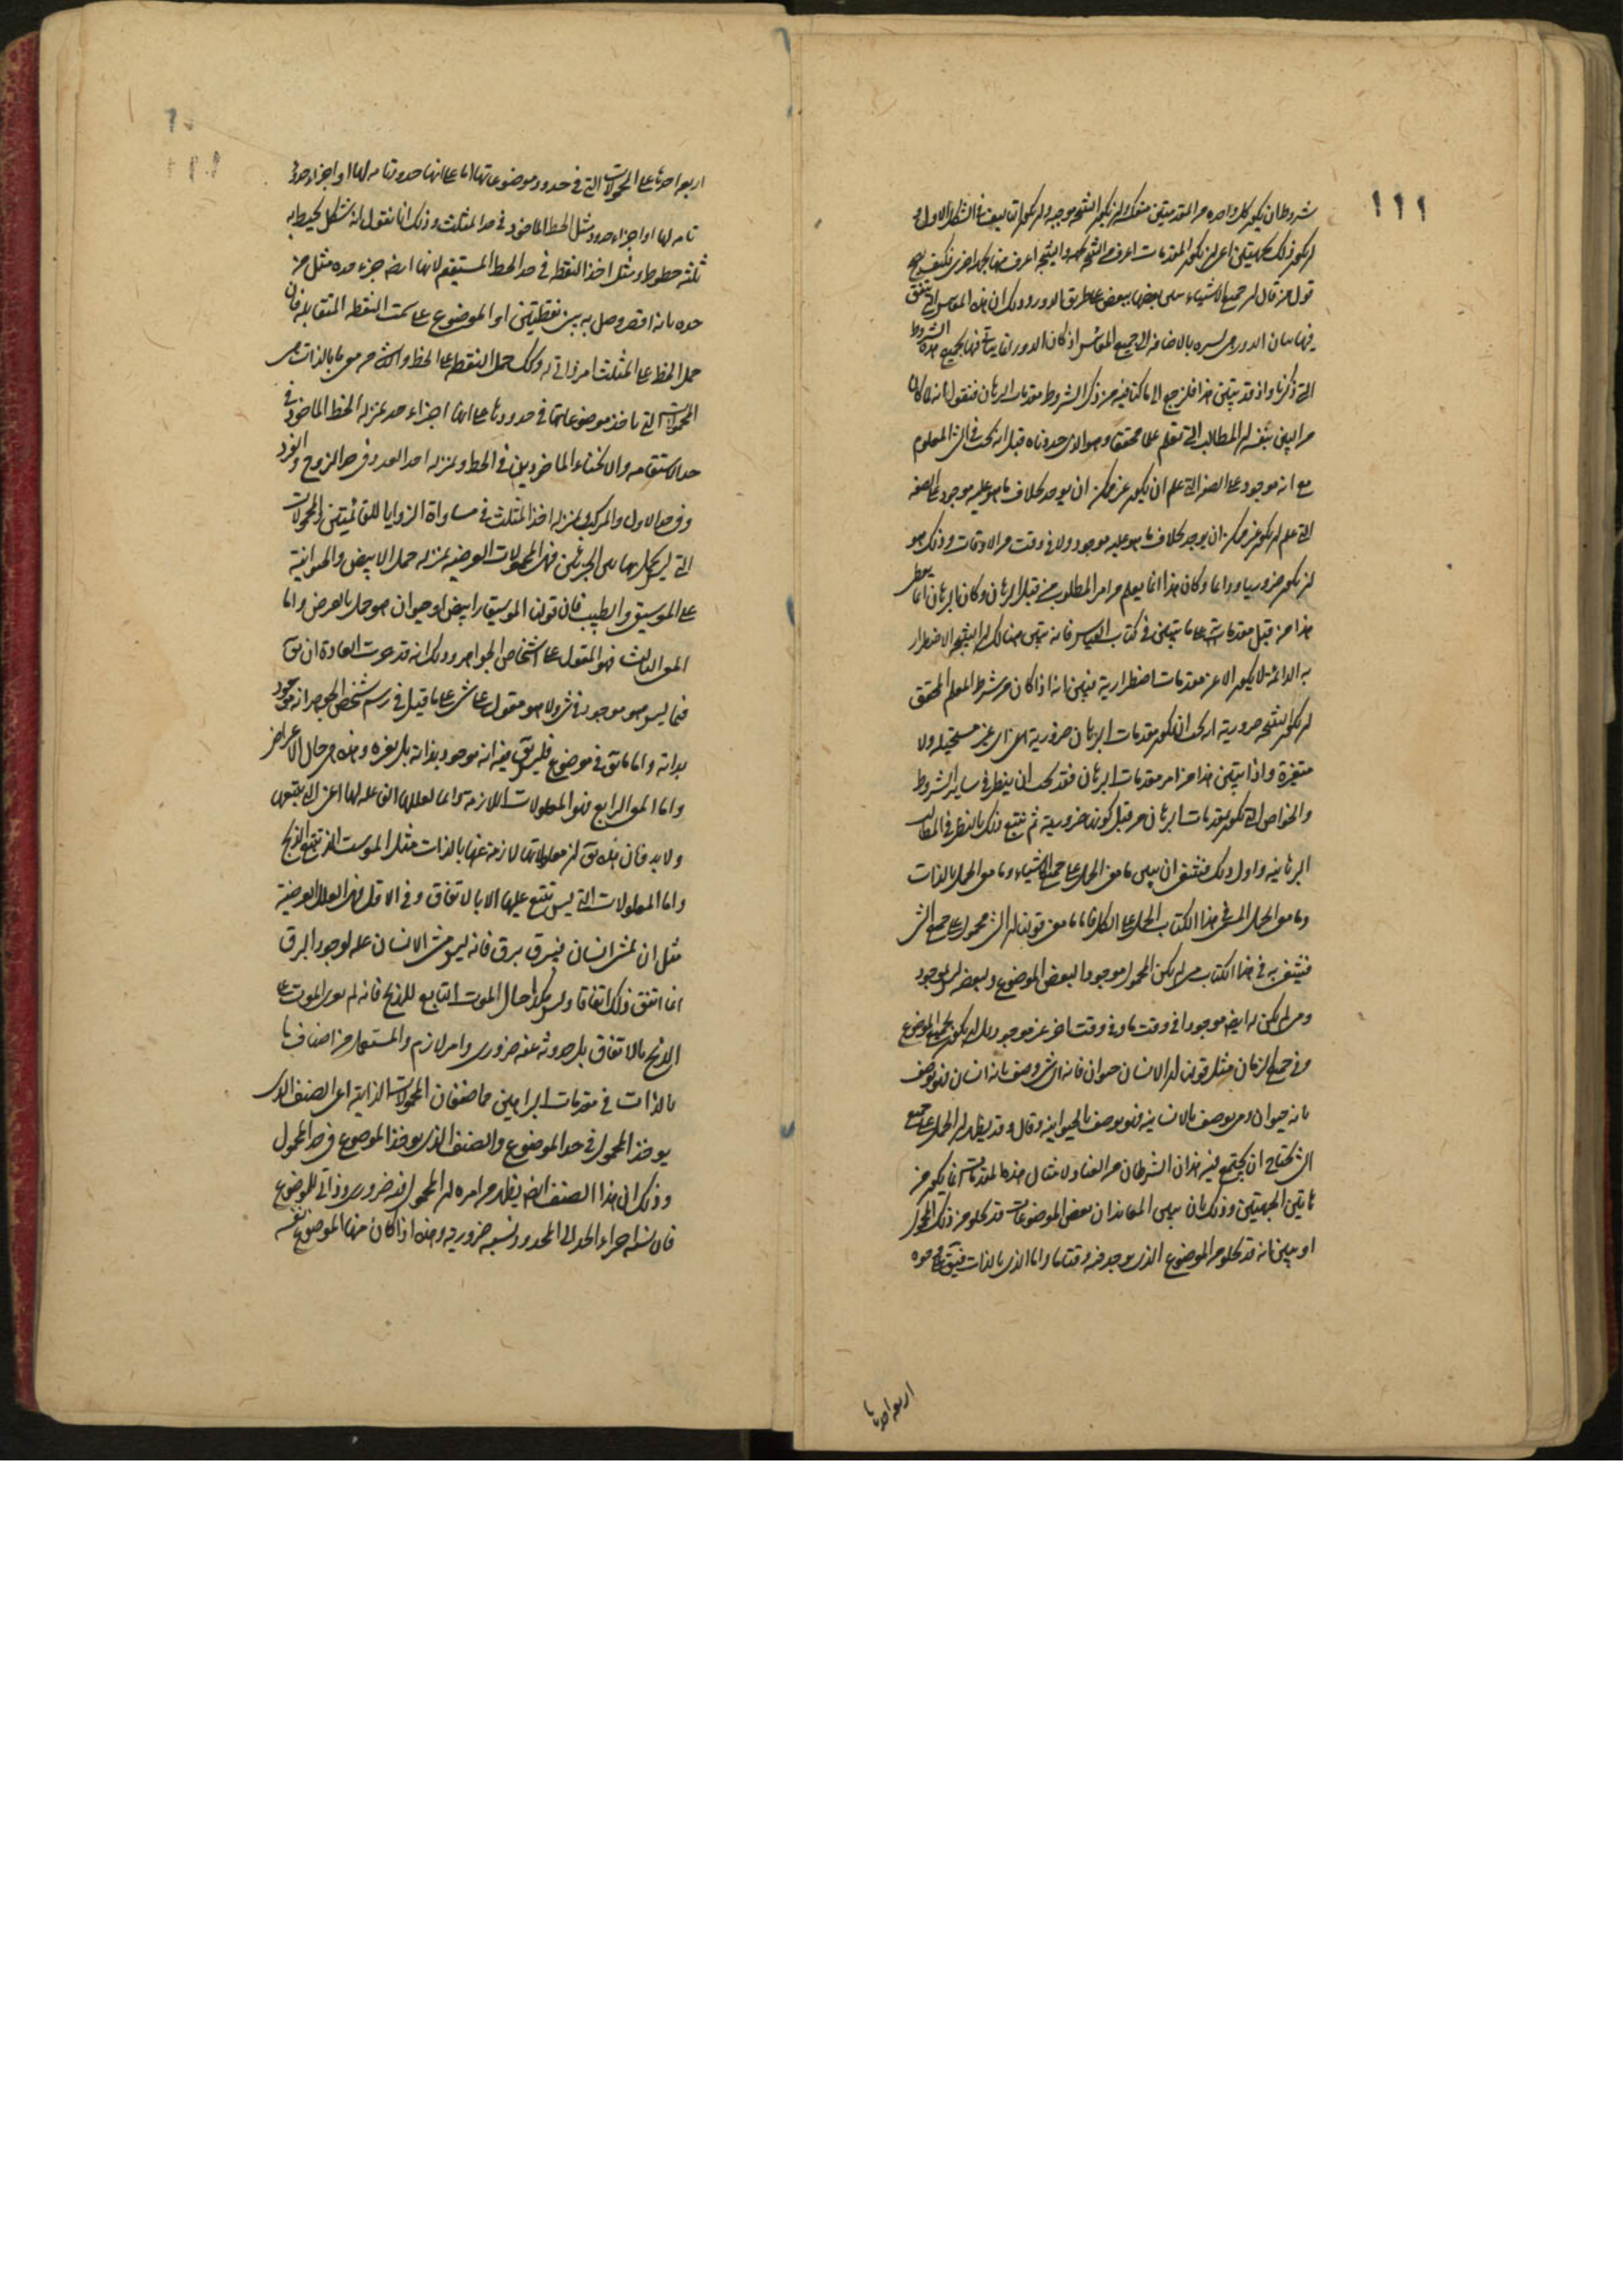 ١١١
شروطا ان يكون كل واحدة من المقدمتين منعكسة وان يكون النتيجة موجبة وان يكون تاليفها في الشكل الاول و
ان يكون ذلك بجهتين اعنى ان يكون المقدمات اعرف من النتيجة بجهة والنتيجة اعرف منها بجهة اخرى فكيف يصح
قول من قال ان جميع الاشياء بعضها ببعض على طريق الدور وذلك ان هذه المقاييس التى يتفق
فيها بيان الدور هى يسيرة بالاضافة الى جميع المقاييس اذ كان الدور انما يتاتى فيها بجميع هذه الشروط
التى ذكرنا واذ قد تبين هذا فلنرجع الى ما كنا فيه من ذكر الشروط مقدمات البرهان فنقول انه لما كان
من البين بنفسه ان المطالب التى تعلم علما محققا وهو الذى حددناه قبل انه يجب فى الشىء المعلوم
مع انه موجود على الصفة التى علم ان يكون غير ممكن ان يوجد بخلاف ما هو عليه موجود على الصفة
التى علم ان يكون غير ممكن ان يوجد بخلاف ما هو عليه موجود ولا فى وقت من الاوقات وذلك هو
ان يكون ضروريا ودائما وكان هذا انما يعلم من امر المطلوب من قبل البرهان وكان البرهان انما يعطى
هذا من قبل مقدماته على ما تبين فى كتاب القياس فانه تبين هنالك ان النتيجة الاضطرار
ية الدائمة لا يكون الا عن مقدمات اضطرارية فبين انه اذا كان من شرط العلم المحقق
ان يكون النتيجة ضرورية انه يجب ان يكون مقدمات البرهان ضرورية اعنى غير مستحيلة ولا
متغيرة واذا تبين هذا من امر مقدمات البرهان فقد يجب ان ينظر فى ساير الشروط
والخواص التى تكون لمقدمات البرهان من قبل كونها ضرورية ثم نتبع ذلك بالنظر فى المطالب
البرهانية واول ذلك فينبغى ان نبين ما معنى الحمل على جميع الاشياء وما معنى الحمل بالذات
وما معنى الحمل المسمى فى هذا الكتاب الحمل على الكل فاما معنى قولنا ان الشىء محمول على جميع الشىء
فينبغى به فى هذا الكتاب متى لم يكن المحمول موجودا لبعض الموضوع ولبعضه ليس بموجود
ومتى لم يكن له ايضا موجودا فى وقت ما وفى وقت اخر غير موجود بل ان يكون لجميع الموضوع
وفى جميع الزمان مثل قولنا ان الانسان حيوان فانه اى شىء وصف بانه انسان فهو يوصف
بانه حيوان ومتى يوصف بالانسانية فهو يوصف بالحيوانية وقال وقد يظهر ان الحمل على جميع
الشىء يحتاج ان يجتمع فيه هذان الشرطان من العناد لامثال هذه المقدمات انما يكون من
هاتين الجهتين وذلك بان يبين المعاند ان بعض الموضوعات قد يخلو من ذلك المحمول
او يبين انه قد يخلو من الموضوع الذى يوجد فيه وقتا ما واما الذى بالذات فيق على وجوه
اربعه احدها
اربعه احدها على المحمولات التى فى حدود موضوعاتها اما على انها حدود تامه لها او اجزاء حدود
تامه لها او اجزاء حدود مثل الخط الماخوذ فى حد المثلث وذلك انا نقول انه شكل يحيط به
ثلثه خطوط ومثل اخذ النقطه فى حد الخط المستقيم لانها ايضا جزء حده مثل من
حده بانه اقصر وصل به بين نقطتين او الموضوع على سمت النقطه المتقابله فان
حمل الخط على المثلث امر ذاتى له وكك حمل النقطه على الخط والثانى من معنى ما بالذات هى
المحمولات التى ماخذ موضوعاتها فى حدودها على انها اجزاء حد بمنزلة الخط الماخوذ فى
حد الاستقامه والانحناء الماخوذين فى الخط وبمنزله اخذ العدد فى حد الزوج والفرد
وفى حد الاول والمركب وبمنزله اخذ المثلث فى مساواة الزوايا للقائمتين والمحمولات
التى ليس حملها على الجهتين فهى المحمولات العرضيه بمنزله حمل الابيض والحيوانية
على الموسيقى والطبيب فان قولنا الموسيقار ابيض او حيوان هو حمل بالعرض واما
المعنى الثالث فهو المقول على اشخاص الجواهر وذلك انه قد جرت العادة ان يق
فيما ليس هو موجود فى شىء ولا هو مقول على شىء على ما قيل فى رسم شخص الجوهر انه موجود
بذاته واما ما يق فى موضوع فليس يق فيه انه موجود بذاته بل بغيره وهذه هى حال الاعراض
واما المعنى الرابع فهو المعلولات اللازمة دائما لعللها الفاعله لها اعنى التى يتبعها
ولا بد فان هذه يق ان معلولاتها لازمة عنها بالذات مثل الموت الذى يتبع الذبح
واما المعلولات التى ليس تتبع عللها الا بالاتفاق وفى الاقل فهى العلل العرضية
مثل ان يمشى انسان فيبرق برق فانه ليس مشى الانسان علة لوجود البرق
انما اتفق ذلك اتفاقا وليس هكذا حال الموت التابع للذبح فانه لم يعر الموت على
الذبح بالاتفاق بل حدوثه عنه ضرورى وامر لازم والمستعمل من اصناف ما
بالذات فى مقدمات البراهين هما صنفان المحمولات الذاتية اعنى الصنف الذى
يوخذ المحمول فى حد الموضوع والصنف الذى يوخذ الموضوع فى حد المحمول
وذلك ان هذا الصنف ايضا يظهر من امره ان المحمول فيه ضرورى وذاتى للموضوع
فان نسبة اجزاء الحد الى المحدود نسبه ضروريه وهذه اذا كان منها الموضوع نفسه